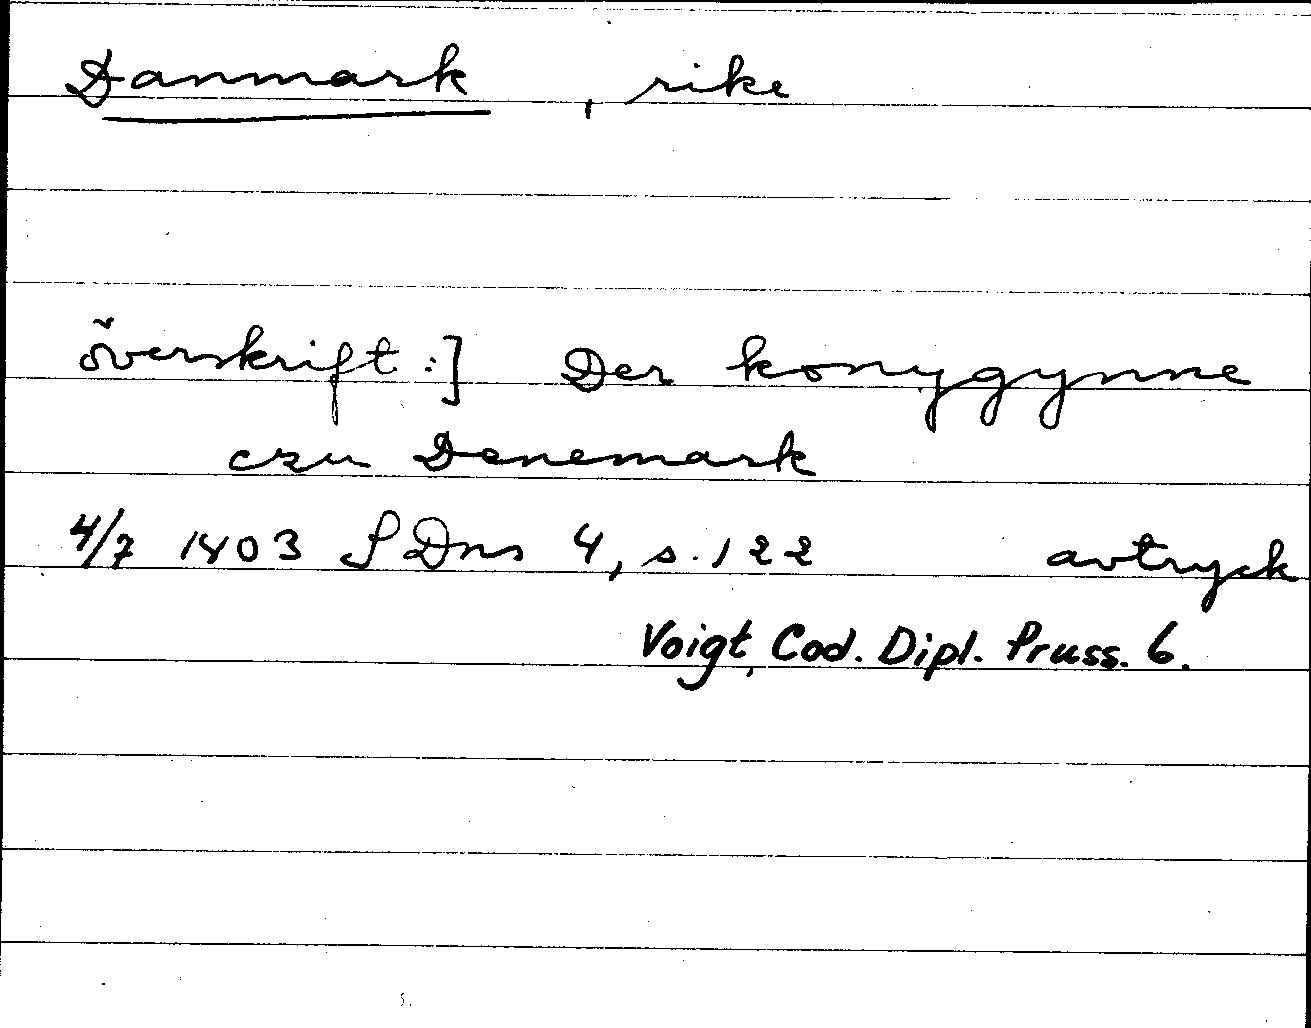 Danmark, rike
överskrift:] Der konygynne
czu Denemark
4/7 1403 SDns 4, s. 122 avtryck
Voigt, Cod. Dipl. Pruss. 6.